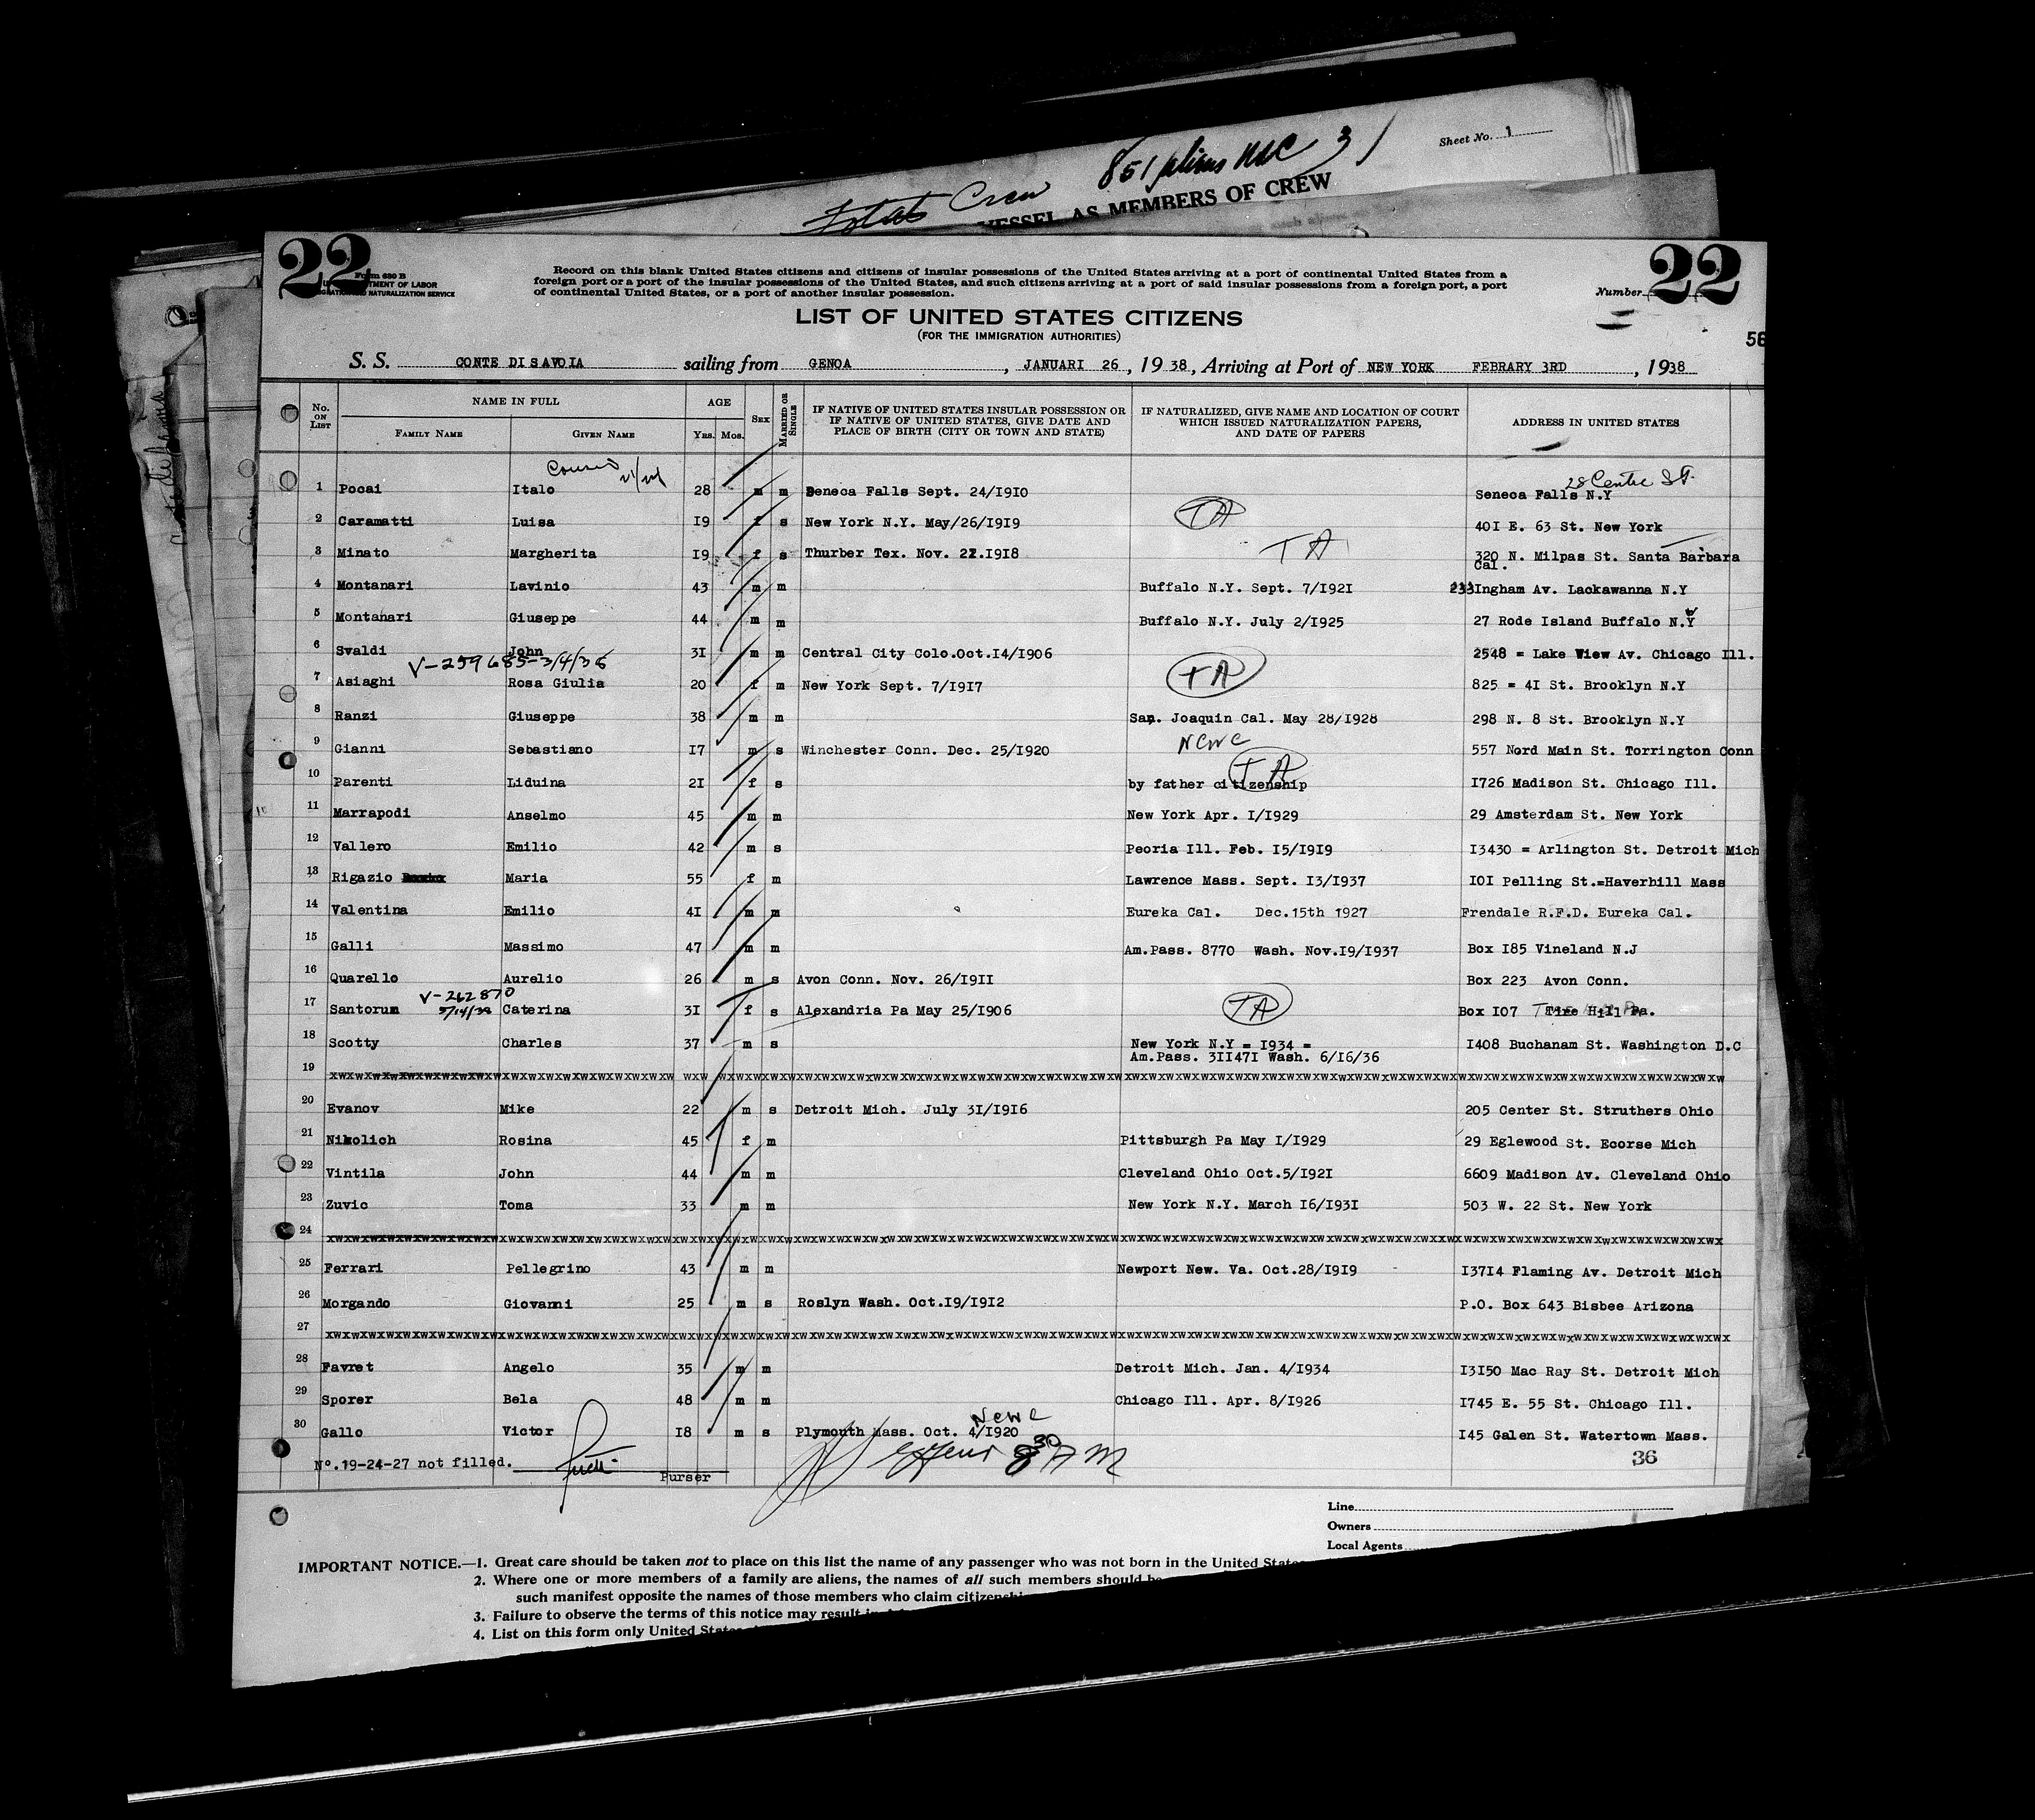 Sheet No. 1
851 aliens
Total Crew
VESSEL AS MEMBERS OF CREW
22
22
Form 630 B
TMENT OF LABOR
NATURALIZATION SERVICE
Record on this blank United States citizens and citizens of insular possessions of the United States arriving at a port of continental United States from a
foreign port or a port of the insular possessions of the United States, and such citizens arriving at a port of said insular possessions from a foreign port, a port
of continental United States, or a port of another insular possession.
Number
LIST OF UNITED STATES CITIZENS
(FOR THE IMMIGRATION AUTHORITIES)
56
S. S. CONTE DI SAVOIA sailing from GENOA, JANUARI 26, 1938, Arriving at Port of NEW YORK FEBRARY 3RD, 1938
No. ON LIST NAME IN FULL AGE SEX MARRIED OR SINGLE IF NATIVE OF UNITED STATES INSULAR POSSESSION OR IF NATIVE OF UNITED STATES, GIVE DATE AND PLACE OF BIRTH (CITY OR TOWN AND STATE) IF NATURALIZED, GIVE NAME AND LOCATION OF COURT WHICH ISSUED NATURALIZATION PAPERS, AND DATE OF PAPERS ADDRESS IN UNITED STATES
FAMILY NAME GIVEN NAME YRS. MOS.
28 Centre St.
1 Pocai Italo 28 m m Seneca Falls Sept. 24/I9I0 Seneca Falls N.Y
2 Caramatti Luisa I9 f s New York N.Y. May/26/I9I9 TA 40I E. 63 St. New York
3 Minato Margherita I9 f s Thurber Tex. Nov. 22.I9I8 TA 320 N. Milpas St. Santa Barbara
Cal.
4 Montanari Lavinio 43 m m Buffalo N.Y. Sept. 7/I92I 233Ingham Av. Lackawanna N.Y
5 Montanari Giuseppe 44 m m Buffalo N.Y. July 2/I925 27 Rode Island Buffalo N.Y
6 Svaldi John 3I m m Central City Colo.Oct.I4/I906 2548 = Lake View Av. Chicago Ill.
V-259685-3/4/38
7 Asiaghi Rosa Giulia 20 f m New York Sept. 7/I9I7 TA 825 = 4I St. Brooklyn N.Y
8 Ranzi Giuseppe 38 m m San. Joaquin Cal. May 28/I928 298 N. 8 St. Brooklyn N.Y
9 Gianni Sebastiano I7 m s Winchester Conn. Dec. 25/I920 NCWC 557 Nord Main St. Torrington Conn
10 Parenti Liduina 2I f s by father citizenship TA I726 Madison St. Chicago Ill.
11 Marrapodi Anselmo 45 m m New York Apr. I/I929 29 Amsterdam St. New York
12 Vallero Emilio 42 m s Peoria Ill. Feb. I5/I9I9 I3430 = Arlington St. Detroit Mich
13 Rigazio Maria 55 f m Lawrence Mass. Sept. I3/I937 I0I Pelling St.=Haverhill Mass
14 Valentina Emilio 4I m m Eureka Cal. Dec.15th 1927 Frendale R.F.D. Eureka Cal.
15 Galli Massimo 47 m m Am.Pass. 8770 Wash. Nov.I9/I937 Box I85 Vineland N.J
16 Quarello Aurelio 26 m s Avon Conn. Nov. 26/I9II Box 223 Avon Conn.
V-262870
17 Santorum 5/14/38 Caterina 3I f s Alexandria Pa May 25/I906 TA Box I07 Tire Hill Pa.
18 Scotty Charles 37 m s New York N.Y = I934 = I408 Buchanam St. Washington D.C
Am.Pass. 3II47I Wash. 6/I6/36
19
20 Evanov Mike 22 m s Detroit Mich. July 3I/I9I6 205 Center St. Struthers Ohio
21 Nikolich Rosina 45 f m Pittsburgh Pa May I/I929 29 Eglewood St. Ecorse Mich
22 Vintila John 44 m m Cleveland Ohio Oct.5/I92I 6609 Madison Av. Cleveland Ohio
23 Zuvic Toma 33 m m New York N.Y. March I6/I93I 503 W. 22 St. New York
24
25 Ferrari Pellegrino 43 m m Newport New. Va. Oct.28/I9I9 I37I4 Flaming Av. Detroit Mich
26 Morgando Giovanni 25 m s Roslyn Wash. Oct.I9/I9I2 P.O. Box 643 Bisbee Arizona
27
28 Favret Angelo 35 m m Detroit Mich. Jan. 4/I934 I3I50 Mac Ray St. Detroit Mich
29 Sporer Bela 48 m m Chicago Ill. Apr. 8/I926 I745 E. 55 St. Chicago Ill.
NCWC
30 Gallo Victor I8 m s Plymouth Mass. Oct. 4/I920 I45 Galen St. Watertown Mass.
Nº.19-24-27 not filled. Purser 8 30 AM 36
Line
Owners
Local Agents
IMPORTANT NOTICE.—1. Great care should be taken not to place on this list the name of any passenger who was not born in the United States
2. Where one or more members of a family are aliens, the names of all such members should be
such manifest opposite the names of those members who claim citizenship
3. Failure to observe the terms of this notice may result in
4. List on this form only United States